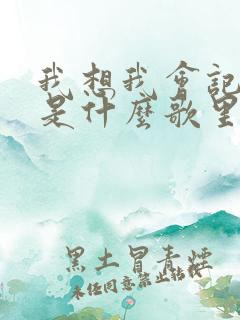 我想我會記
是什麼歌里
黑土冒青煙
未经同意禁止转载